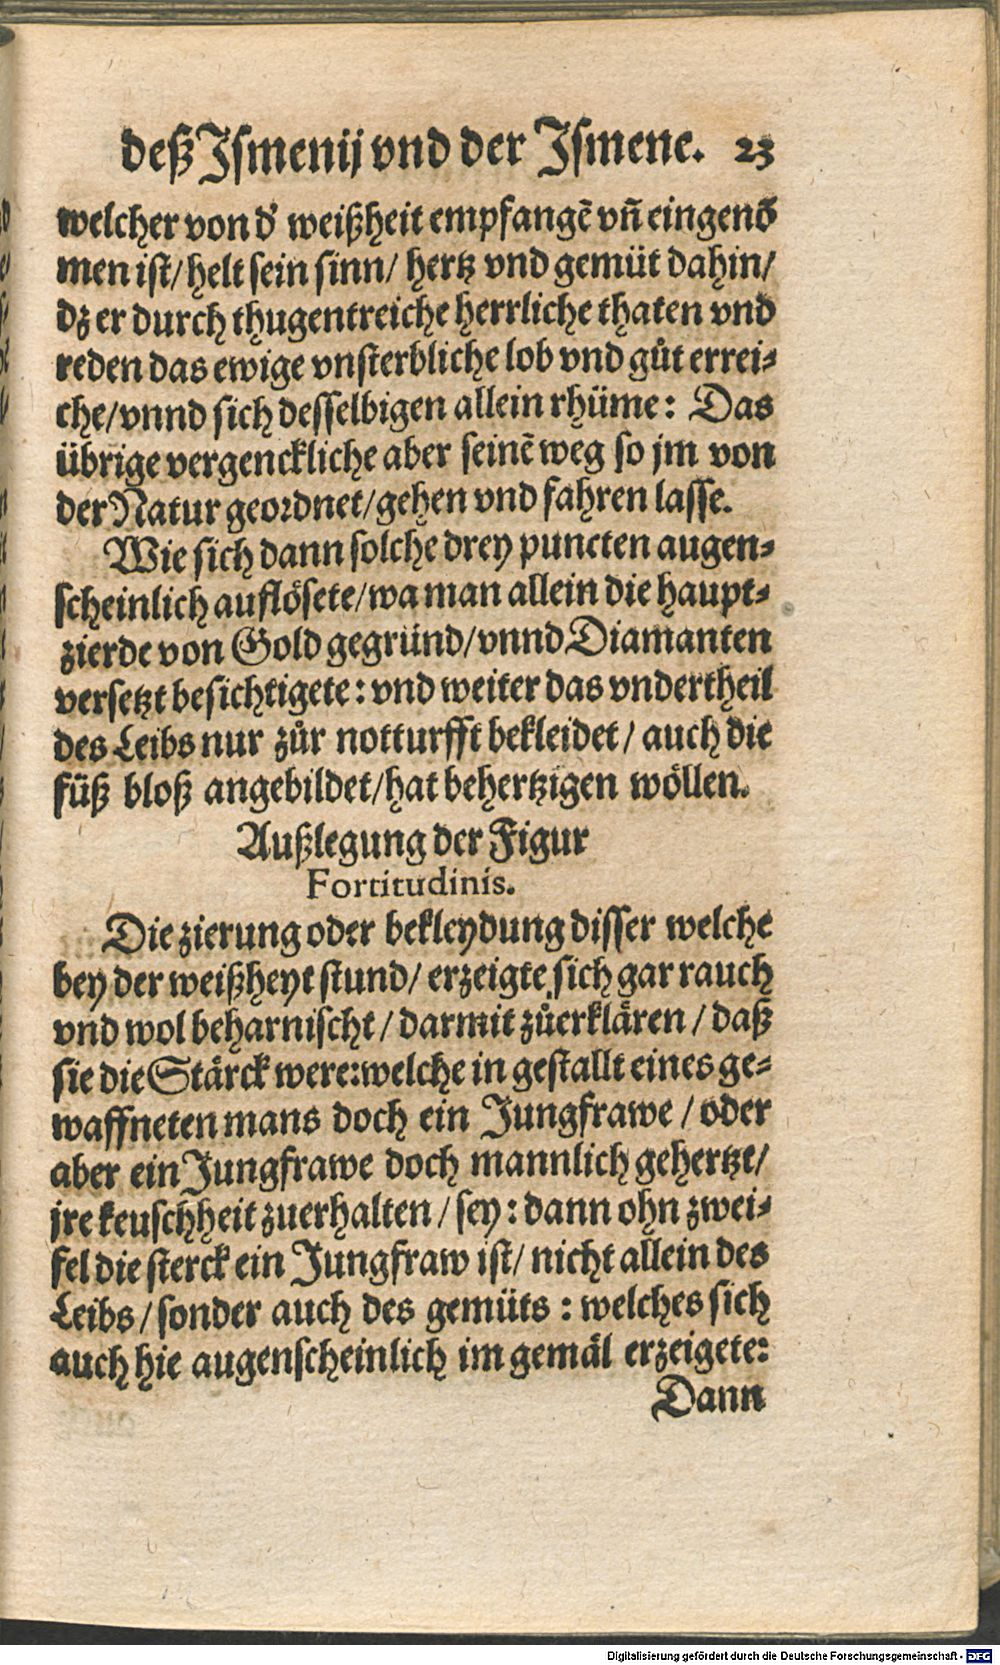 deß Ismenij vnd der Ismene. 23
welcher von d' weißheit empfangẽ vñ eingenõ
men ist/ helt sein sinn/ hertz vnd gemüt dahin/
dz er durch thugentreiche herrliche thaten vnd
reden das ewige vnsterbliche lob vnd gůt errei-
che/ vnnd sich desselbigen allein rhüme: Das
übrige vergenckliche aber seinẽ weg so jm von
der Natur geordnet/ gehen vnd fahren lasse.
Wie sich dann solche drey puncten augen-
scheinlich auflösete/ wa man allein die haupt-
zierde von Gold gegründ/ vnnd Diamanten
versetzt besichtigete: vnd weiter das vndertheil
des Leibs nur zůr notturfft bekleidet/ auch die
füß bloß angebildet/ hat behertzigen wöllen.
Außlegung der Figur
Fortitudinis.
Die zierung oder bekleydung disser welche
bey der weißheyt stund/ erzeigte sich gar rauch
vnd wol beharnischt/ darmit zůerklären/ daß
sie die Stärck were: welche in gestallt eines ge-
waffneten mans doch ein Jungfrawe/ oder
aber ein Jungfrawe doch mannlich gehertzt/
jre keuschheit zuerhalten/ sey: dann ohn zwei-
fel die sterck ein Jungfraw ist/ nicht allein des
Leibs/ sonder auch des gemüts: welches sich
auch hie augenscheinlich im gemäl erzeigete:
Dann
Digitalisierung gefördert durch die Deutsche Forschungsgemeinschaft - DFG